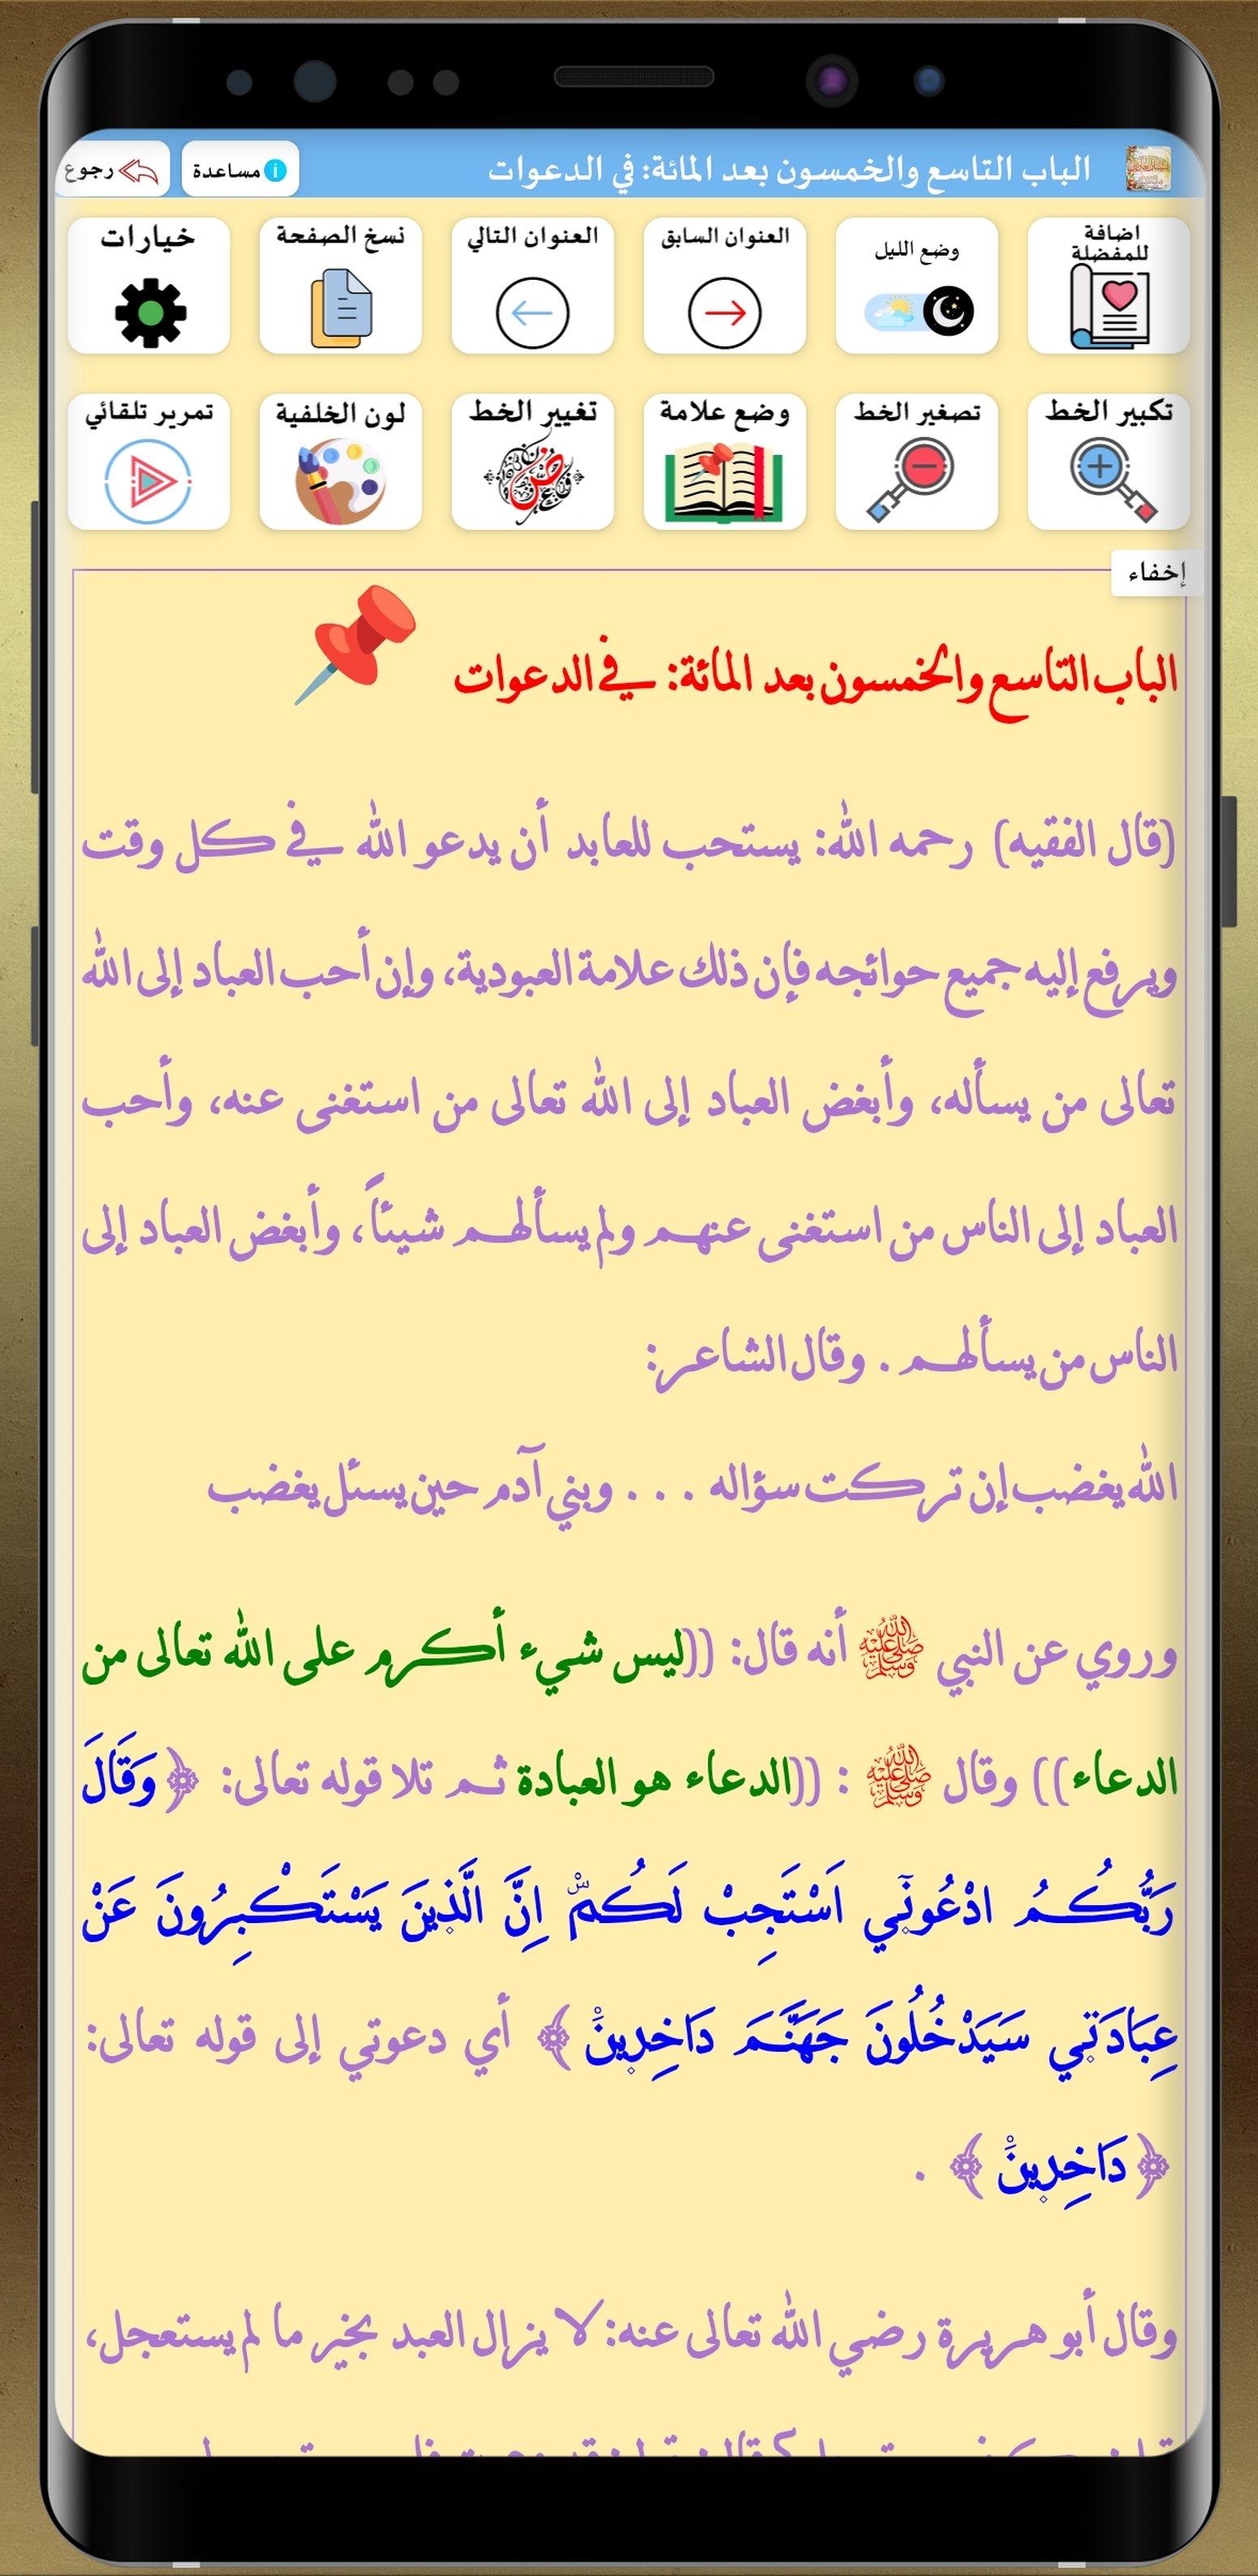 الباب التاسع والخمسون بعد المائة: في الدعوات
مساعدة
رجوع
اضافة للمفضلة
وضع الليل
العنوان السابق
العنوان التالي
نسخ الصفحة
خيارات
تكبير الخط
تصغير الخط
وضع علامة
تغيير الخط
لون الخلفية
تمرير تلقائي
إخفاء
الباب التاسع والخمسون بعد المائة: في الدعوات
(قال الفقيه) رحمه الله: يستحب للعابد أن يدعو الله في كل وقت
ويرفع إليه جميع حوائجه فإن ذلك علامة العبودية، وإن أحب العباد إلى الله
تعالى من يسأله، وأبغض العباد إلى الله تعالى من استغنى عنه، وأحب
العباد إلى الناس من استغنى عنهم ولم يسألهم شيئاً، وأبغض العباد إلى
الناس من يسألهم . وقال الشاعر:
الله يغضب إن تركت سؤاله . . . وبني آدم حين يسئل يغضب
وروي عن النبي ﷺ أنه قال: ((ليس شيء أكرم على الله تعالى من
الدعاء)) وقال ﷺ : ((الدعاء هو العبادة ثم تلا قوله تعالى: ﴿وَقَالَ
رَبُّكُمُ ادْعُونِٓي اَسْتَجِبْ لَكُمْۜ اِنَّ الَّذ۪ينَ يَسْتَكْبِرُونَ عَنْ
عِبَادَت۪ي سَيَدْخُلُونَ جَهَنَّمَ دَاخِر۪ينَ۟ ﴾ أي دعوتي إلى قوله تعالى:
﴿دَاخِر۪ينَ۟ ﴾ .
وقال أبو هريرة رضي الله تعالى عنه: لا يزال العبد بخير ما لم يستعجل،